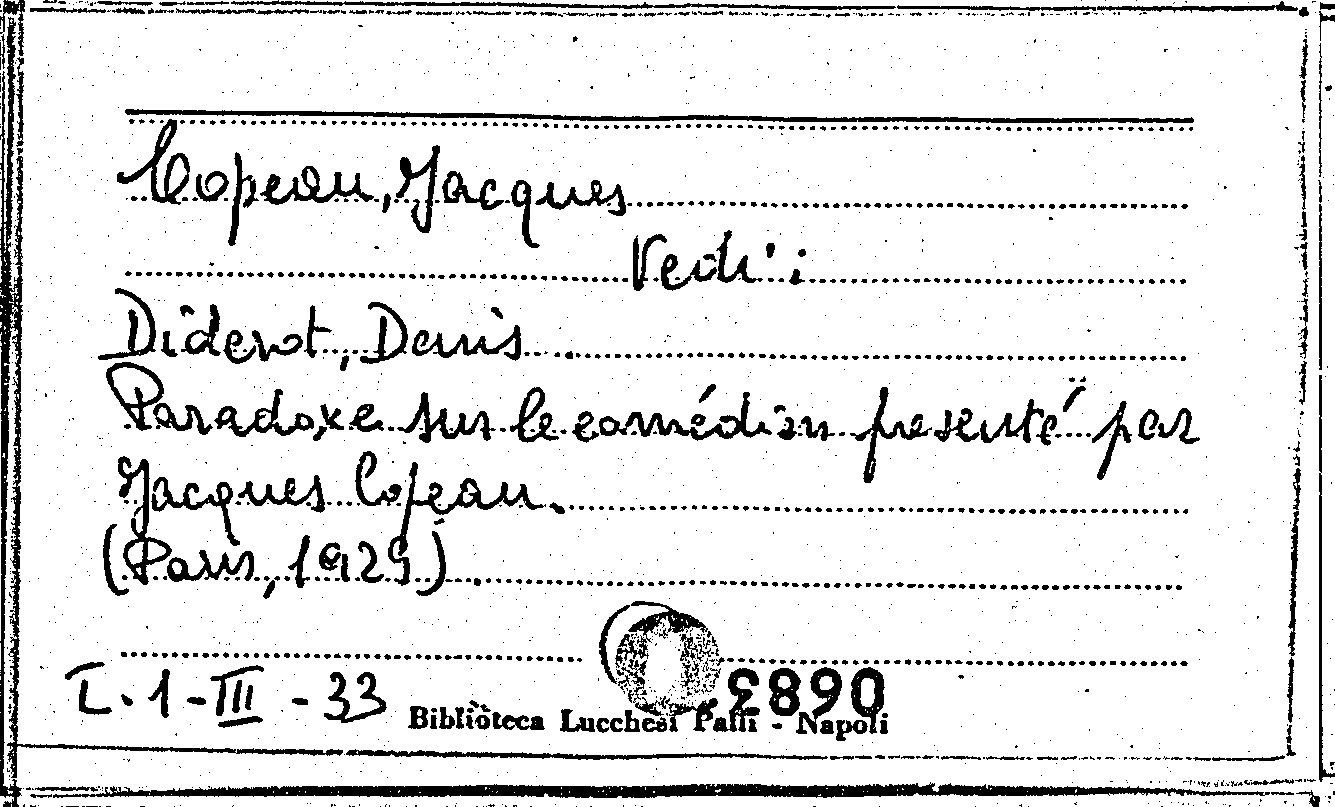 Copeau, Jacques
Vedi:
Diderot, Denis
Paradoxe sur le comédien presenté par
Jacques Copeau.
(Paris, 1929)
I.1-III-33
Biblioteca Lucchesi Palli - Napoli